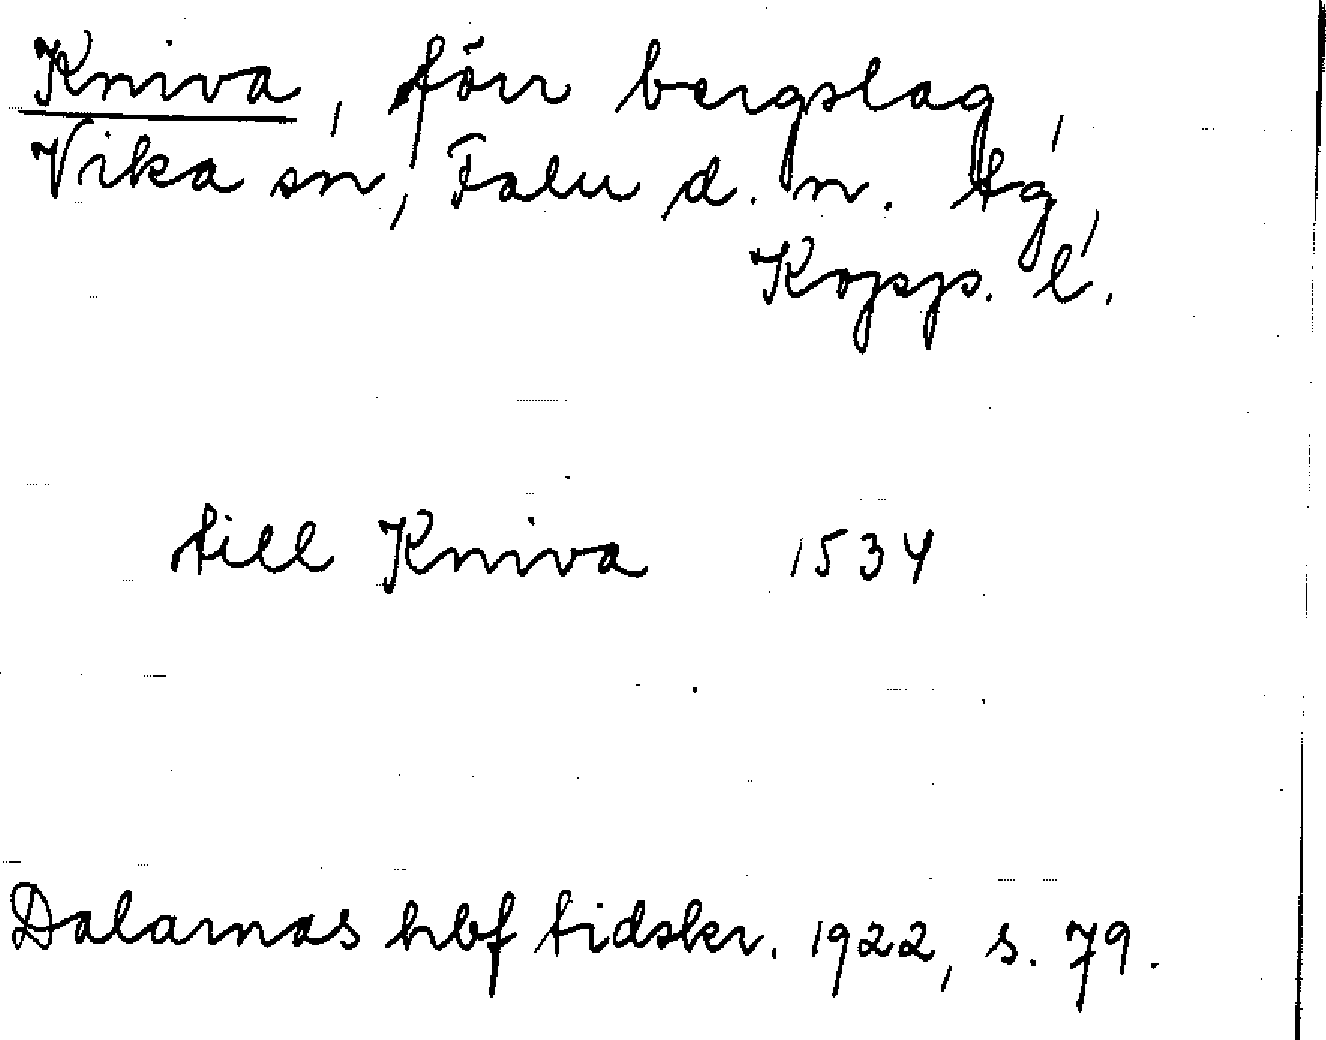 Kniva, förr bergslag,
Vika sn, Falu d. n. tg,
Kopp. l.
till Kniva 1534
Dalarnas hbf tidskr. 1922, s. 79.